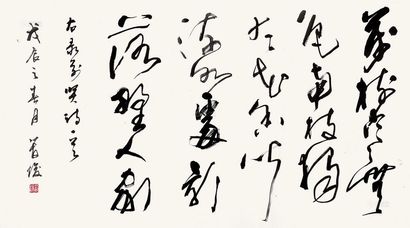 萬樹寒無
色南枝獨
有花香聞
流水處影
落野人家
右录前贤诗一首
戊辰之春月